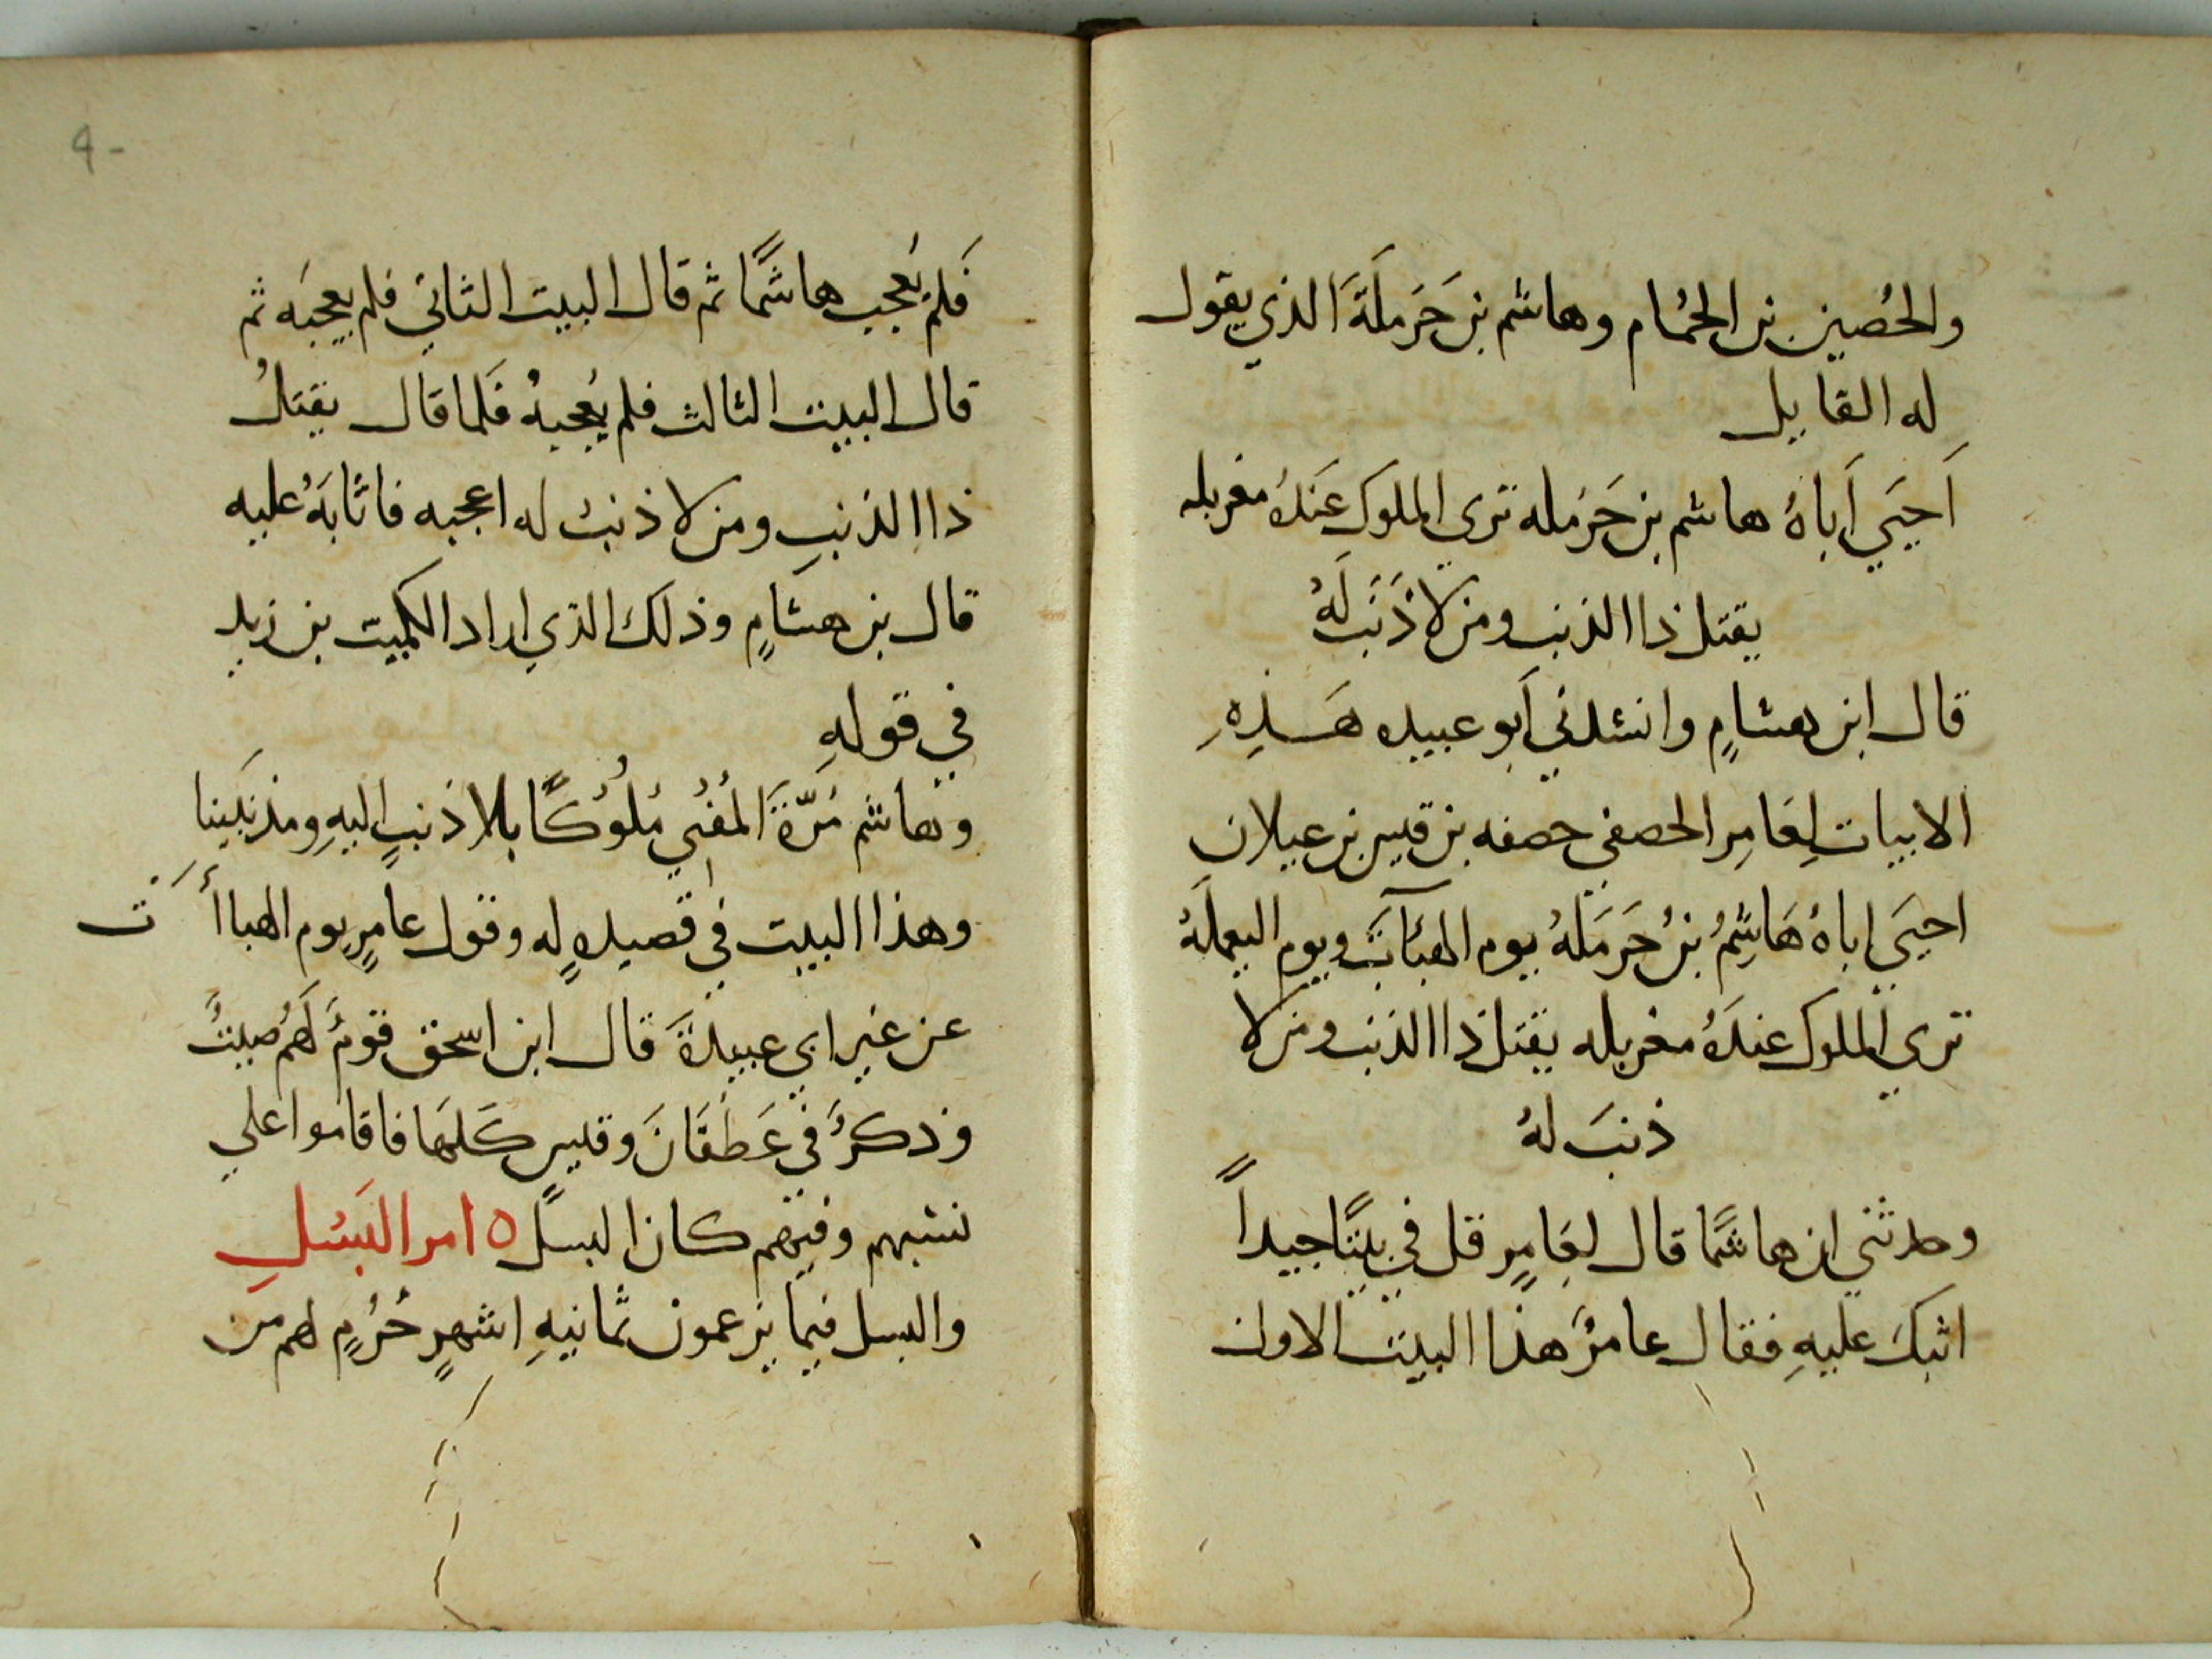 والحُصين بن الحُمام وهاشم بن حَرمَلَةَ الذي يقول
له القايل
اَحيَي اَباهُ هاشم بن حَرمَله ترى الملوك عَندَهُ مغربله
يقتل ذا الذنب ومن لا ذَنَبَ لَهُ
قال ابن هشامٍ وانشدني اَبو عبيده هَذِهِ
الابيات لِعَامِر الحصفي حصفه بن قيس بن عيلان
احيَي اباهُ هَاشِمُ بنُ حَرمَلهُ يوم الهبَآتَ ويوم اليعملَهُ
تري الملوك عندَهُ مغربله يقتل ذا الذنب ومن لا
ذنبَ لهُ
وحدثني ان هاشمًا قال لعَامِرٍ قل فيَّ بيتًا جيداً
اثبكَ عليهِ فقال عامرٌ هذا البيت الاول
٩٠
فَلم يُعجب هاشمًا ثم قال البيت الثاني فلم يعجبَه ثم
قال البيت الثالث فلم يُعجبهُ فَلما قال يقتلُ
ذا الذنبِ ومن لا ذنبَ له اعجبه فاثابَهُ عليه
قال بن هشامٍ وذلك الذي اراد الكميت بن زيد
في قولهِ
وهاشم مُرّةَ المُفني مُلُوكًا بلا ذنبٍ اليهِ ومذنبينا
وهذا البيت في قصيدهٍ له وقول عامرٍ يوم الهباأَت
عن غير ابي عبيدةَ قال ابن اسحق قومٌ لَهُم صيتٌ
وذكرٌ في غَطَفَانَ وقيسٍ كَلها فاقاموا علي
نسبهم وفيهم كان البسل ٥ امر البَسْلِ
والبسل فيما يزعمون ثمانيهِ اشهرٍ حُرُمٍ لهم من